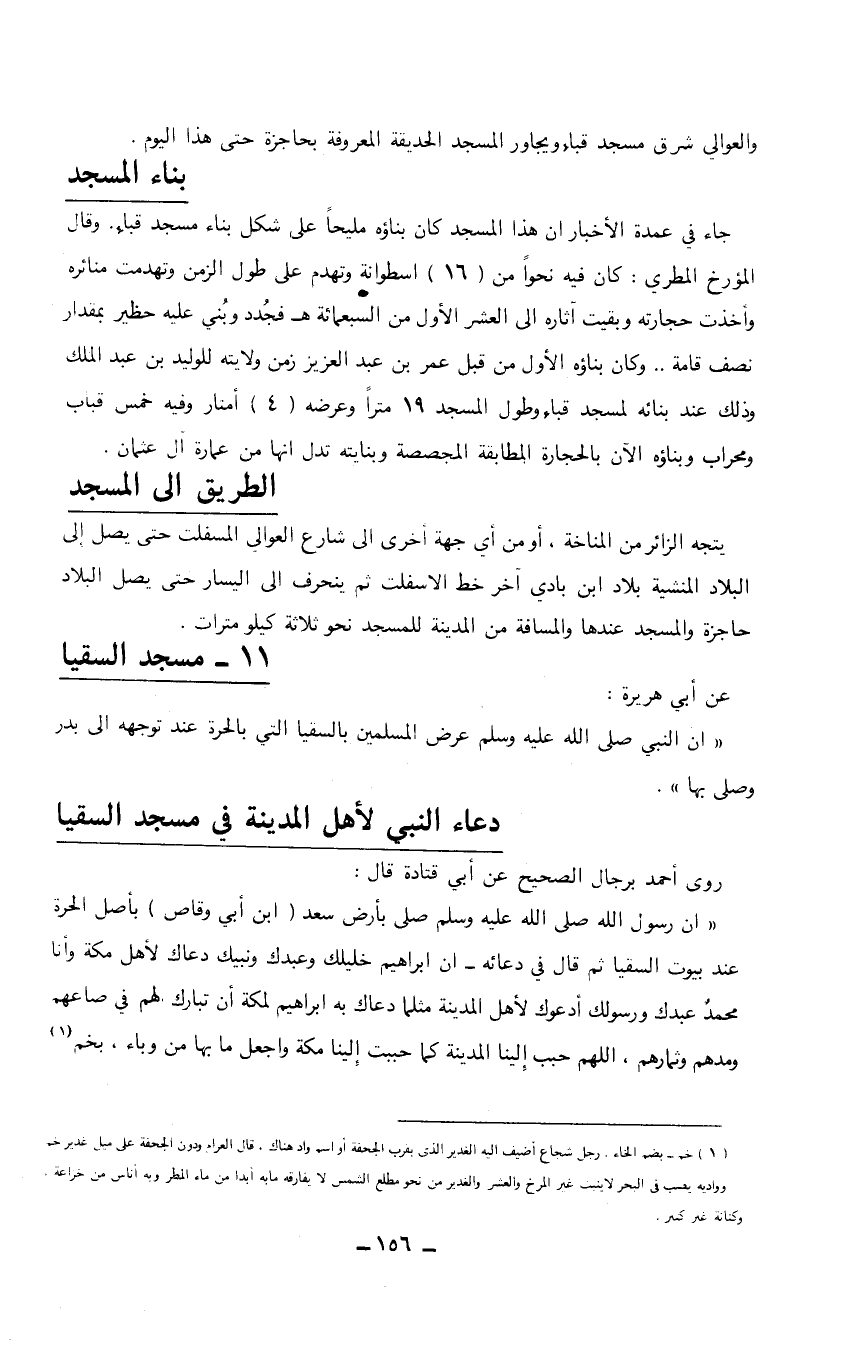 والعوالي شرق مسجد قباء ويجاور المسجد الحديقة المعروفة بحاجزة حتى هذا اليوم .
بناء المسجد
جاء في عمدة الأخبار ان هذا المسجد كان بناؤه مليحاً على شكل بناء مسجد قباء. وقال
المؤرخ المطري : كان فيه نحواً من ( ١٦ ) اسطوانة وتهدم على طول الزمن وتهدمت منائره
وأخذت حجارته وبقيت آثاره الى العشر الأول من السبعمائة هـ فجُدد وبُني عليه حظير بمقدار
نصف قامة .. وكان بناؤه الأول من قبل عمر بن عبد العزيز زمن ولايته للوليد بن عبد الملك
وذلك عند بنائه لمسجد قباء وطول المسجد ١٩ متراً وعرضه ( ٤ ) أمتار وفيه خمس قباب
ومحراب وبناؤه الآن بالحجارة المطابقة المجصصة وبنايته تدل انها من عمارة آل عثمان .
الطريق الى المسجد
يتجه الزائر من المناخة ، أو من أي جهة أخرى الى شارع العوالي المسفلت حتى يصل إلى
البلاد المنشية بلاد ابن بادي آخر خط الاسفلت ثم ينحرف الى اليسار حتى يصل البلاد
حاجزة والمسجد عندها والمسافة من المدينة للمسجد نحو ثلاثة كيلو مترات .
١١ ـ مسجد السقيا
عن أبي هريرة :
« ان النبي صلى الله عليه وسلم عرض المسلمين بالسقيا التي بالحرة عند توجهه الى بدر
وصلى بها » .
دعاء النبي لأهل المدينة في مسجد السقيا
روى أحمد برجال الصحيح عن أبي قتادة قال :
« ان رسول الله صلى الله عليه وسلم صلى بأرض سعد ( ابن أبي وقاص ) بأصل الحرة
عند بيوت السقيا ثم قال في دعائه ـ ان ابراهيم خليلك وعبدك ونبيك دعاك لأهل مكة وأنا
محمدٌ عبدك ورسولك أدعوك لأهل المدينة مثلما دعاك به ابراهيم لمكة أن تبارك لهم في صاعهم
ومدهم وثمارهم ، اللهم حبب إلينا المدينة كما حببت إلينا مكة واجعل ما بها من وباء ، بخم(١)
( ١ ) خم ـ بضم الخاء . رجل شجاع أضيف اليه الغدير الذى بقرب الجحفة أو اسم واد هناك . قال العرام ودون الجحفة على ميل غدير خم
وواديه يصب فى البحر لاينبت غير المرخ والعشر والغدير من نحو مطلع الشمس لا يفارقه مابه أبدا من ماء المطر وبه أناس من خزاعة .
وكنانة غير كثير .
ـ ١٥٦ ـ